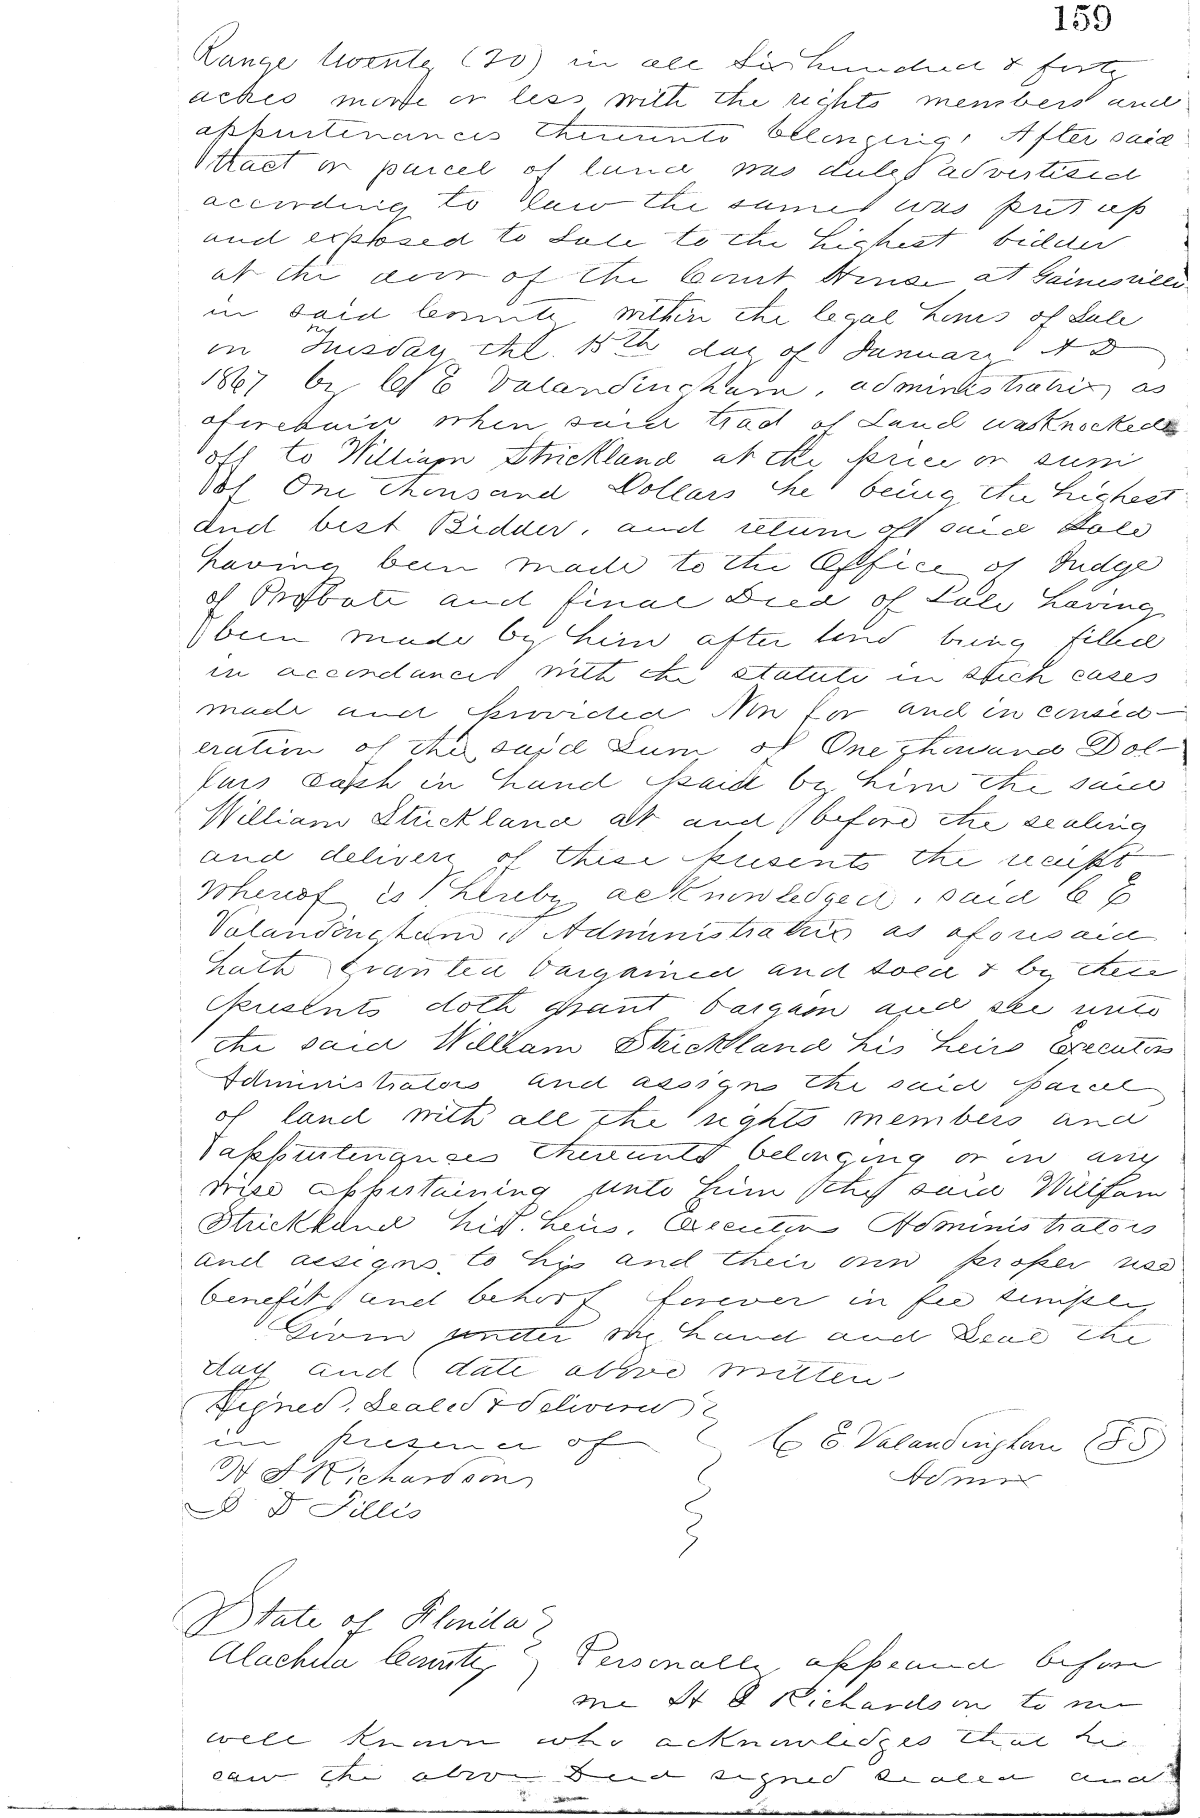 159
Range twenty (20) in all Six hundred & forty
acres more or less with the rights members and
appurtenances thereunto belonging. After said
tract or parcel of land was duly advertised
according to law the same was put up
and exposed to Sale to the highest bidder
at the door of the Court House at Gainesville
in said County within the legal hours of Sale
on Tuesday the 15th day of January A D
1867 by C E Valandingham, administratrix as
aforesaid when said tract of Land was Knocked
off to William Strickland at the price or sum
of One thousand Dollars he being the highest
and best Bidder, and return of said Sale
having been made to the Office of Judge
of Probate and final Deed of Sale having
been made by him after bond being filled
in accordance with the statute in such cases
made and provided Now for and in consid-
eration of the said Sum of One thousand Dol-
lars Cash in hand paid by him the said
William Strickland at and before the sealing
and delivery of these presents the receipt
whereof is hereby acknowledged, said C E
Valandingham Administratrix as aforesaid
hath granted bargained and sold & by these
presents doth grant bargain and sell unto
the said William Strickland his heirs Executors
Administrators and assigns the said parcel
of land with all the rights members and
appurtenances thereunto belonging or in any
wise appertaining unto him the said William
Strickland his heirs, Executors Administrators
and assigns, to his and their own proper use
benefit and behoof forever in fee simple
Given under my hand and Seal the
day and date above written
Signed, Sealed & delivered
in presence of C E Valandingham (SS)
H S Richardson Admrx
D D Tillis
State of Florida
Alachua County Personally appeared before
me H S Richardson to me
well known who acknowledges that he
saw the above Deed signed sealed and